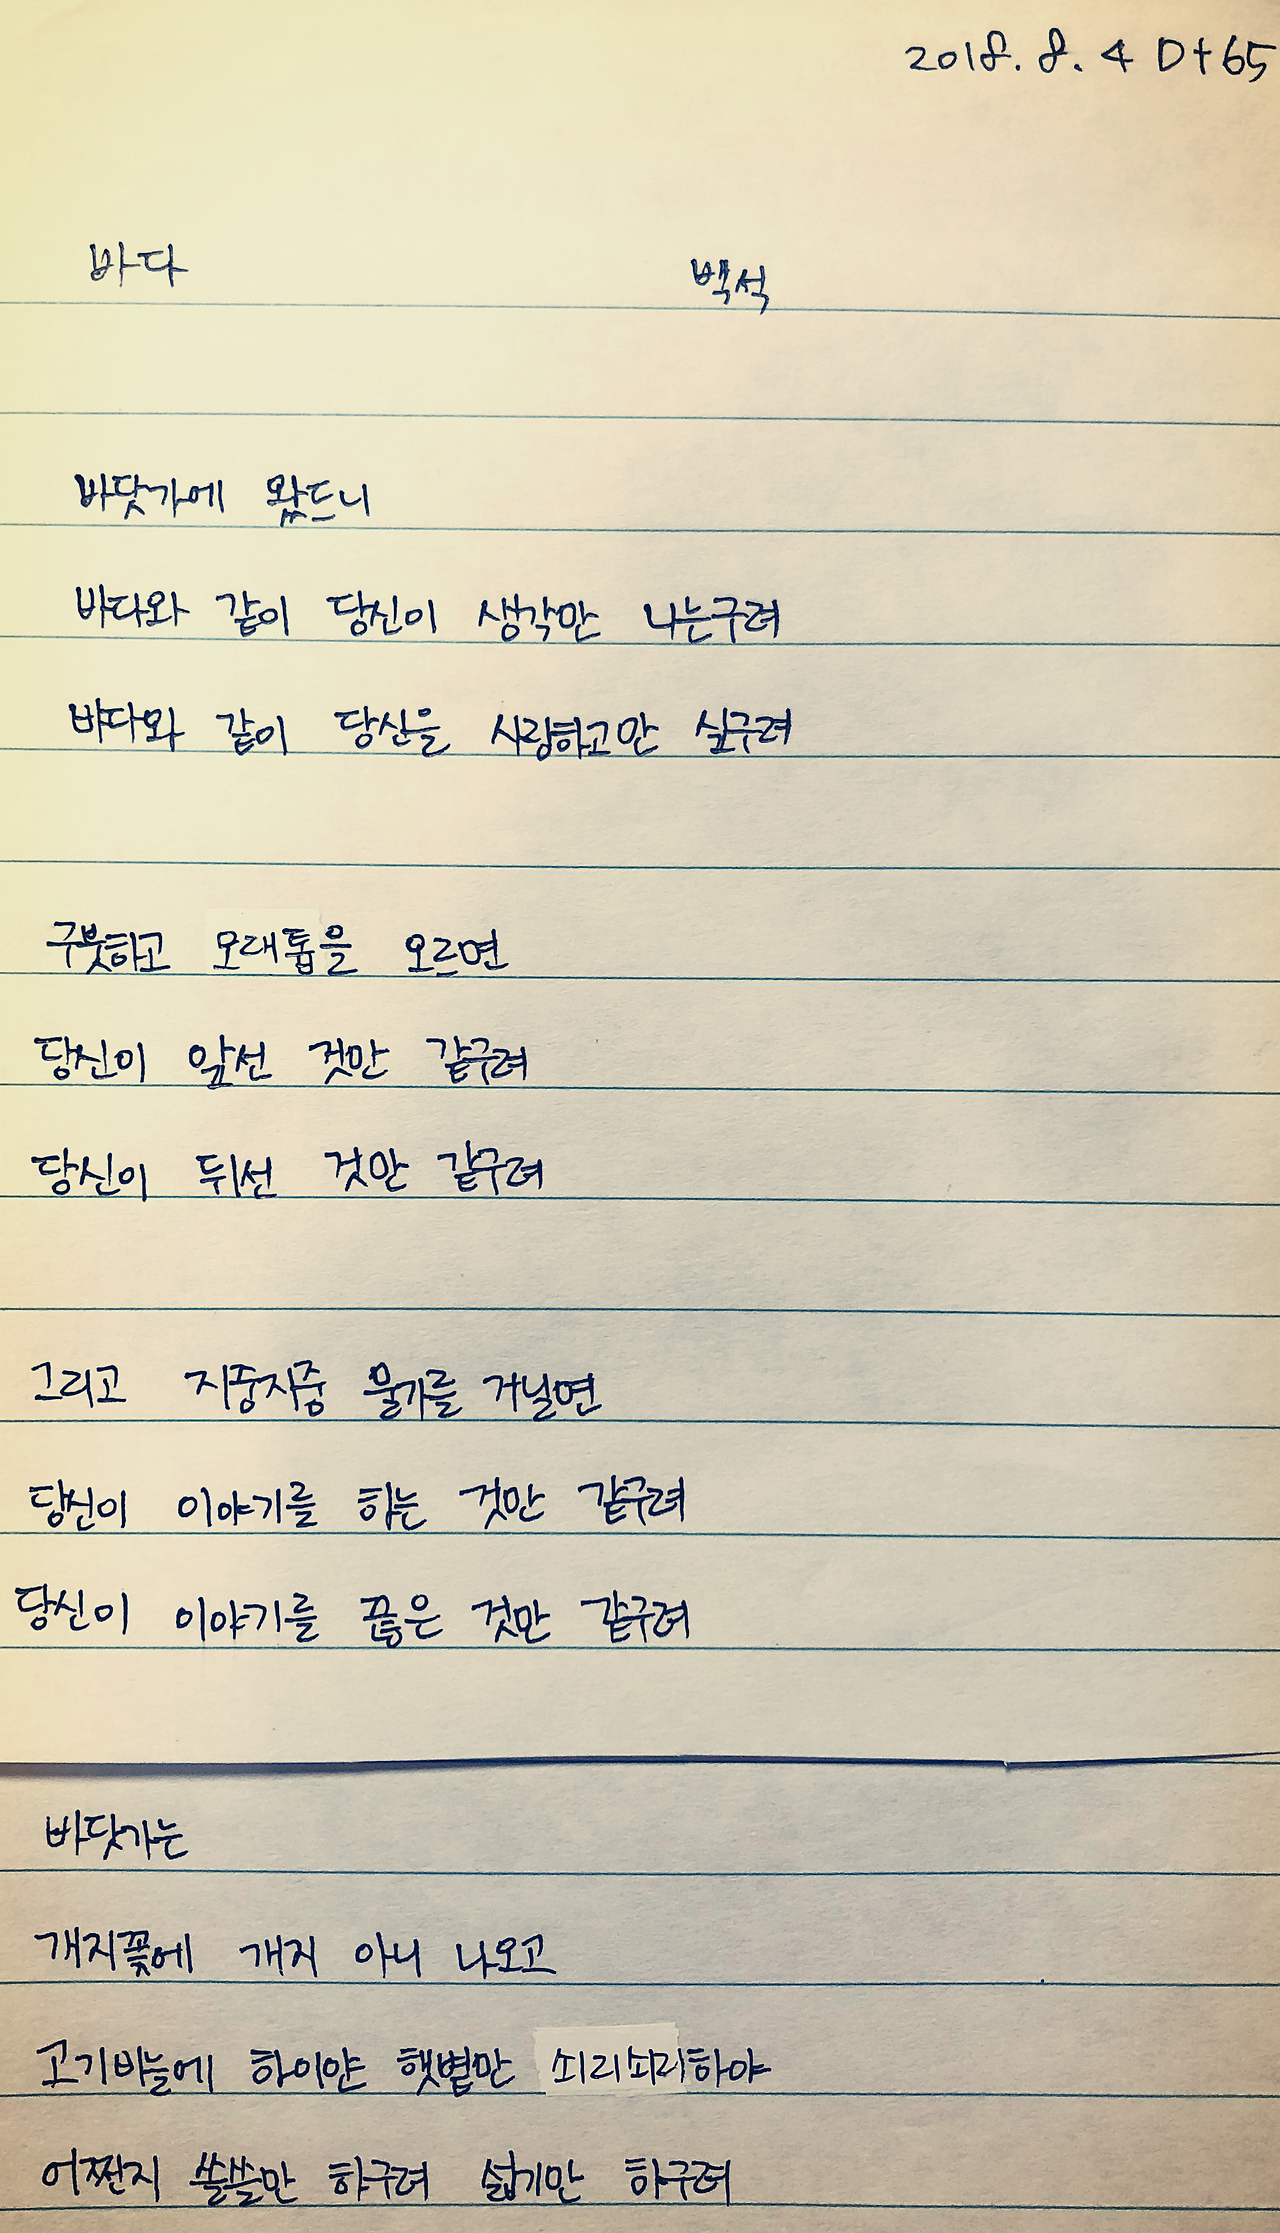 2018. 8. 4 D+65
바다 백석
바닷가에 왔드니
바다와 같이 당신이 생각만 나는구려
바다와 같이 당신을 사랑하고만 싶구려
구붓하고 모래톱을 오르면
당신이 앞선 것만 같구려
당신이 뒤선 것만 같구려
그리고 지중지중 물가를 거닐면
당신이 이야기를 하는 것만 같구려
당신이 이야기를 끊은 것만 같구려
바닷가는
개지꽃에 개지 아니 나오고
고기비늘에 하이얀 햇볕만 쇠리쇠리하야
어쩐지 쓸쓸만 하구려 섧기만 하구려